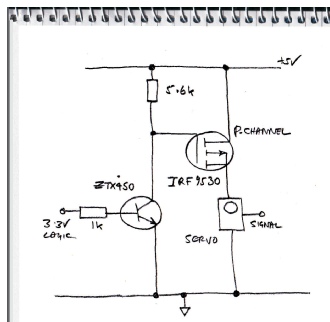 +5V
5.6k
P.CHANNEL
IRF9530
ZTX450
3.3V
LOGIC
1k
SIGNAL
SERVO